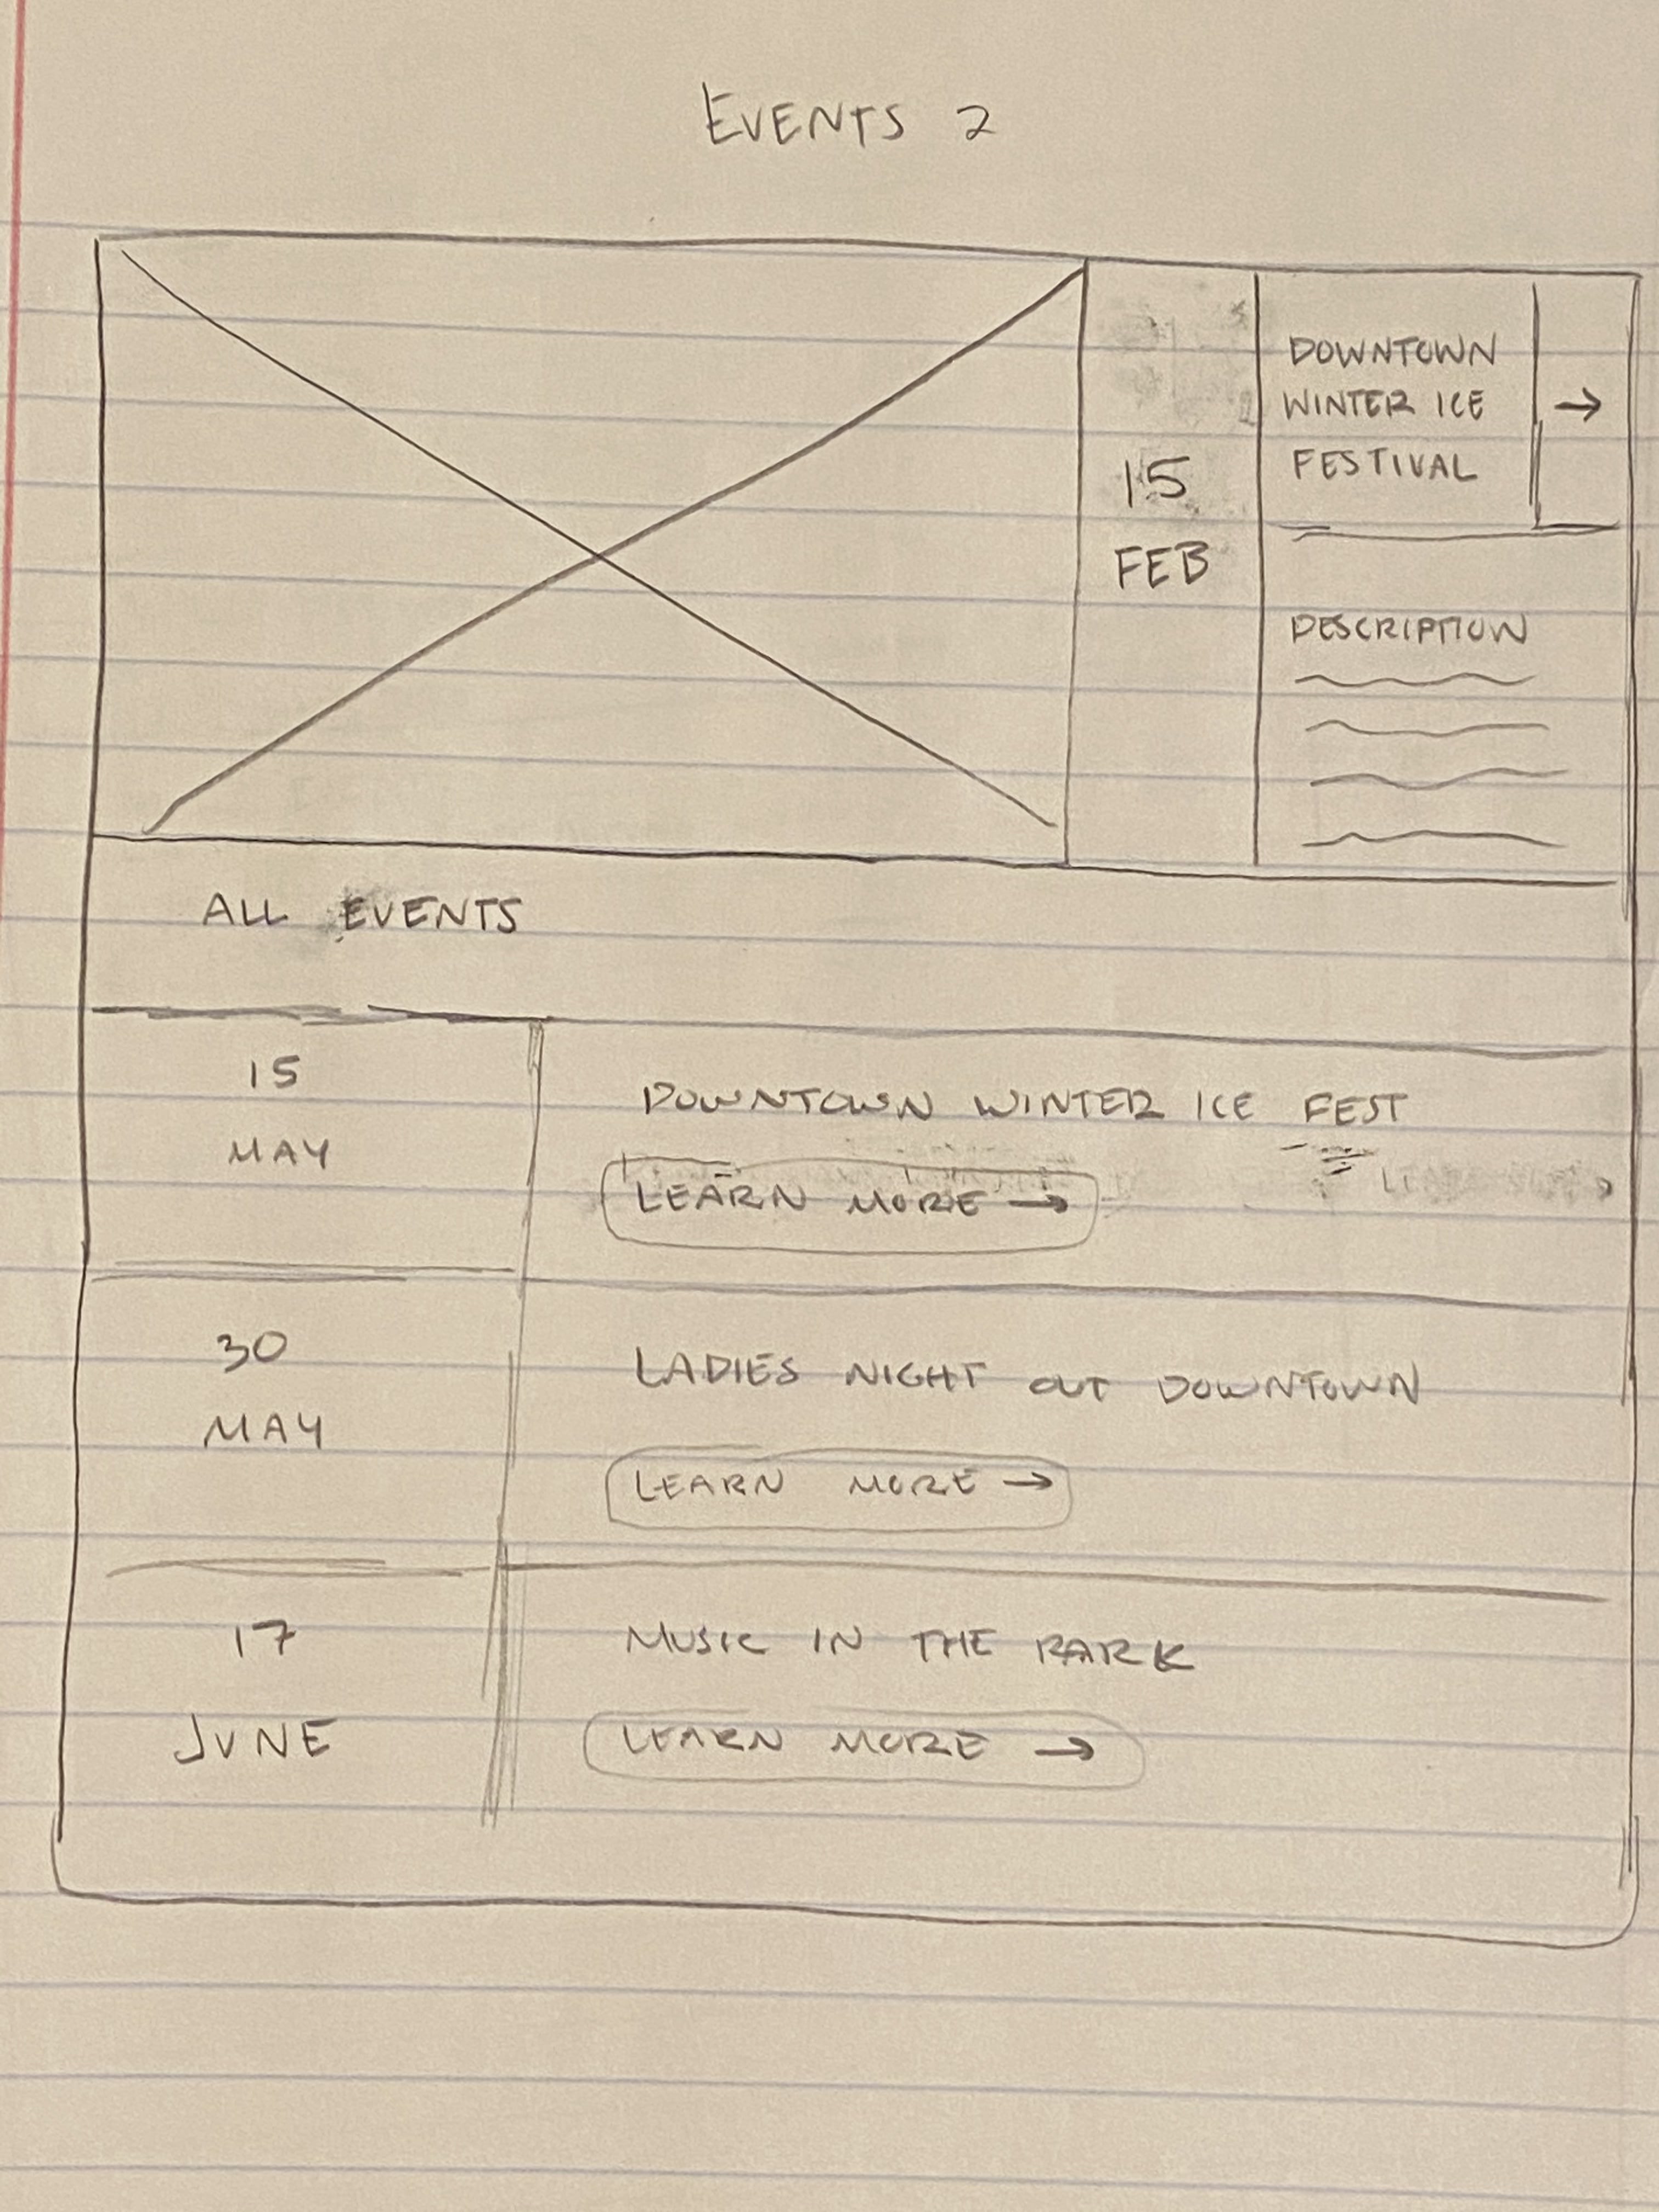 EVENTS 2
DOWNTOWN
WINTER ICE →
FESTIVAL
15
FEB
DESCRIPTION
ALL EVENTS
15
MAY
DOWNTOWN WINTER ICE FEST
LEARN MORE →
30
MAY
LADIES NIGHT OUT DOWNTOWN
LEARN MORE →
17
JUNE
MUSIC IN THE PARK
LEARN MORE →